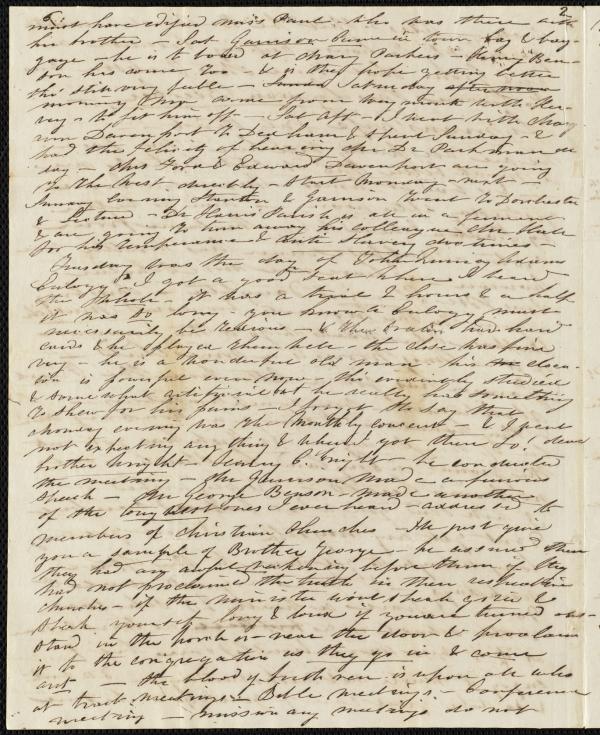 2
must have edified Miss Paul who was there with
his brother - Sat Garrison came in town bag & bag-
gage - he is to board at Mary Parkers - Henry Ben-
son has come too - & is they hope getting better
tho' still very feeble - Saturday afternoon
morning Thop came from
to fit him off - Sat Aft - I went with Mary
ron Davenport to Dedham & spent Sunday - &
had the felicity of hearing Dr Parkman all
day - Mrs Ford & Edward Davenport are going
to the West directly - Start Monday next -
Sunday evening Stanton & Garrison went to Dorchester
& Lectured - Dr Harris' Parish is all in a ferment
& are going to turn away his colleague
for his temperance & Anti Slavery doctrines -
Tuesday was the day of John Quincy Adams
Eulogy & I got a good seat where I heard
the whole - it was a trial 2 hours & a half
it was so long you know a Eulogy must
necessarily be tedious - & the Orator had hard
cards & he played them well the close was fine
very - he is a wonderful old man - his elocu-
tion is powerful even now - tho' evidently studied
& somewhat artificial but he really has something
to shew for his pains - I forgot to say that
Monday evening was the monthly concert - & I went
not expecting any thing & when I got there lo! dear
brother Wright - Henry C. Wright - he conducted
the meeting - Mr Garrison made a famous
speech - Mr George Benson made another
of the longest ones I ever heard - addressed to
members of Christian Churches - I'll just give
you a sample of Brother George - he assured them
they had an awful reckoning before them if they
had not proclaimed the truth in their respective
churches - if the minister wont speak
speak yourself long & loud if you are turned out
stand in the porch or near the door & proclaim
it to the congregation as they go in & come
out - the blood of such men is upon all who
at tract meetings - Bible meetings - Conference
meeting - missionary meetings do not